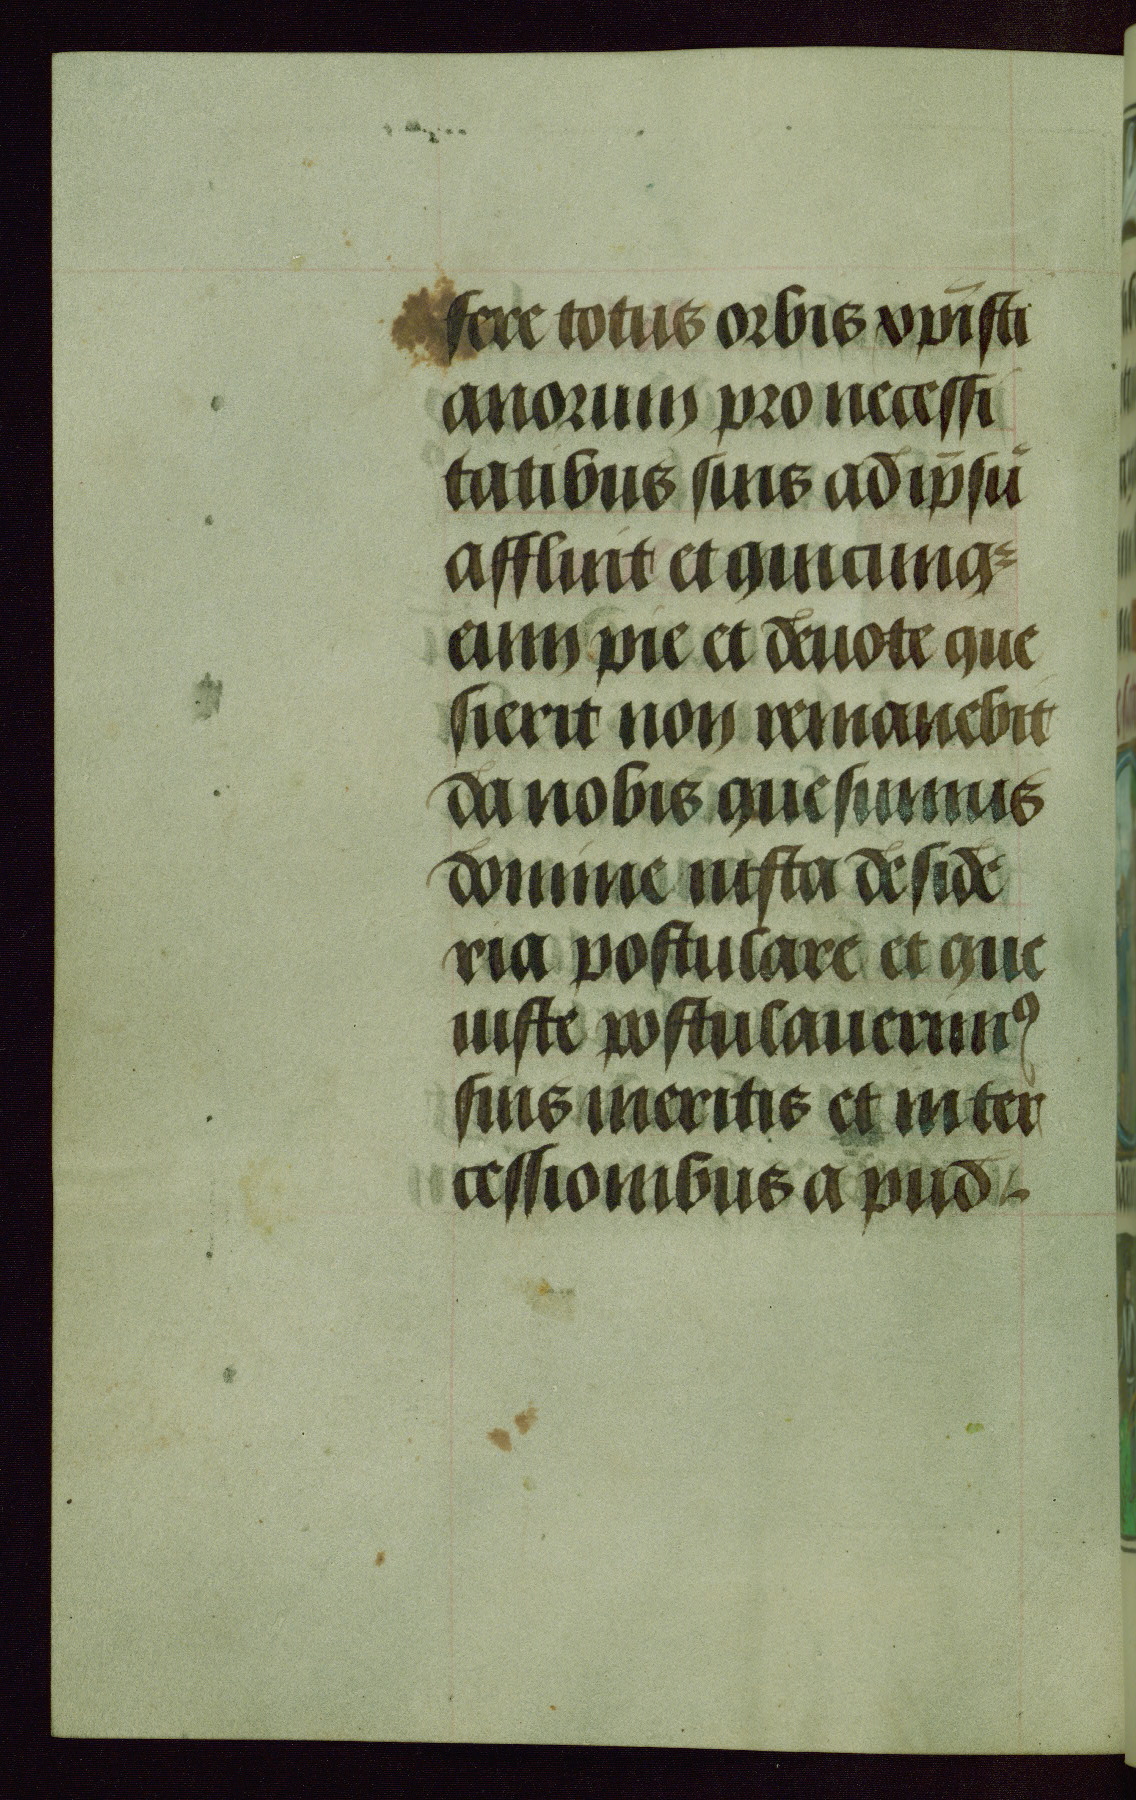 fere totus orbis xp̄isti
anorum pro necessi
tatibus suis ad ip̄sū
affluit et quicunqꝫ
eum pie et deuote que
sierit non remanebit
da nobis quesumus
domine iusta deside
ria postulare et que
iuste postulauerimꝰ
suis meritis et inter
cessionibus apud